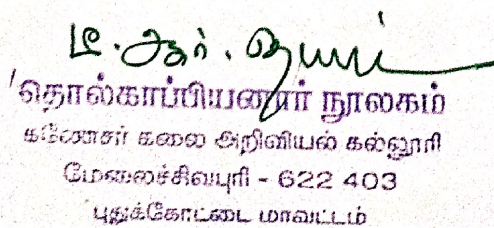 டி. ஆர்.
தொல்காப்பியனார் நூலகம்
கணேசர் கலை அறிவியல் கல்லூரி
மேலைச்சிவபுரி - 622 403
புதுக்கோட்டை மாவட்டம்